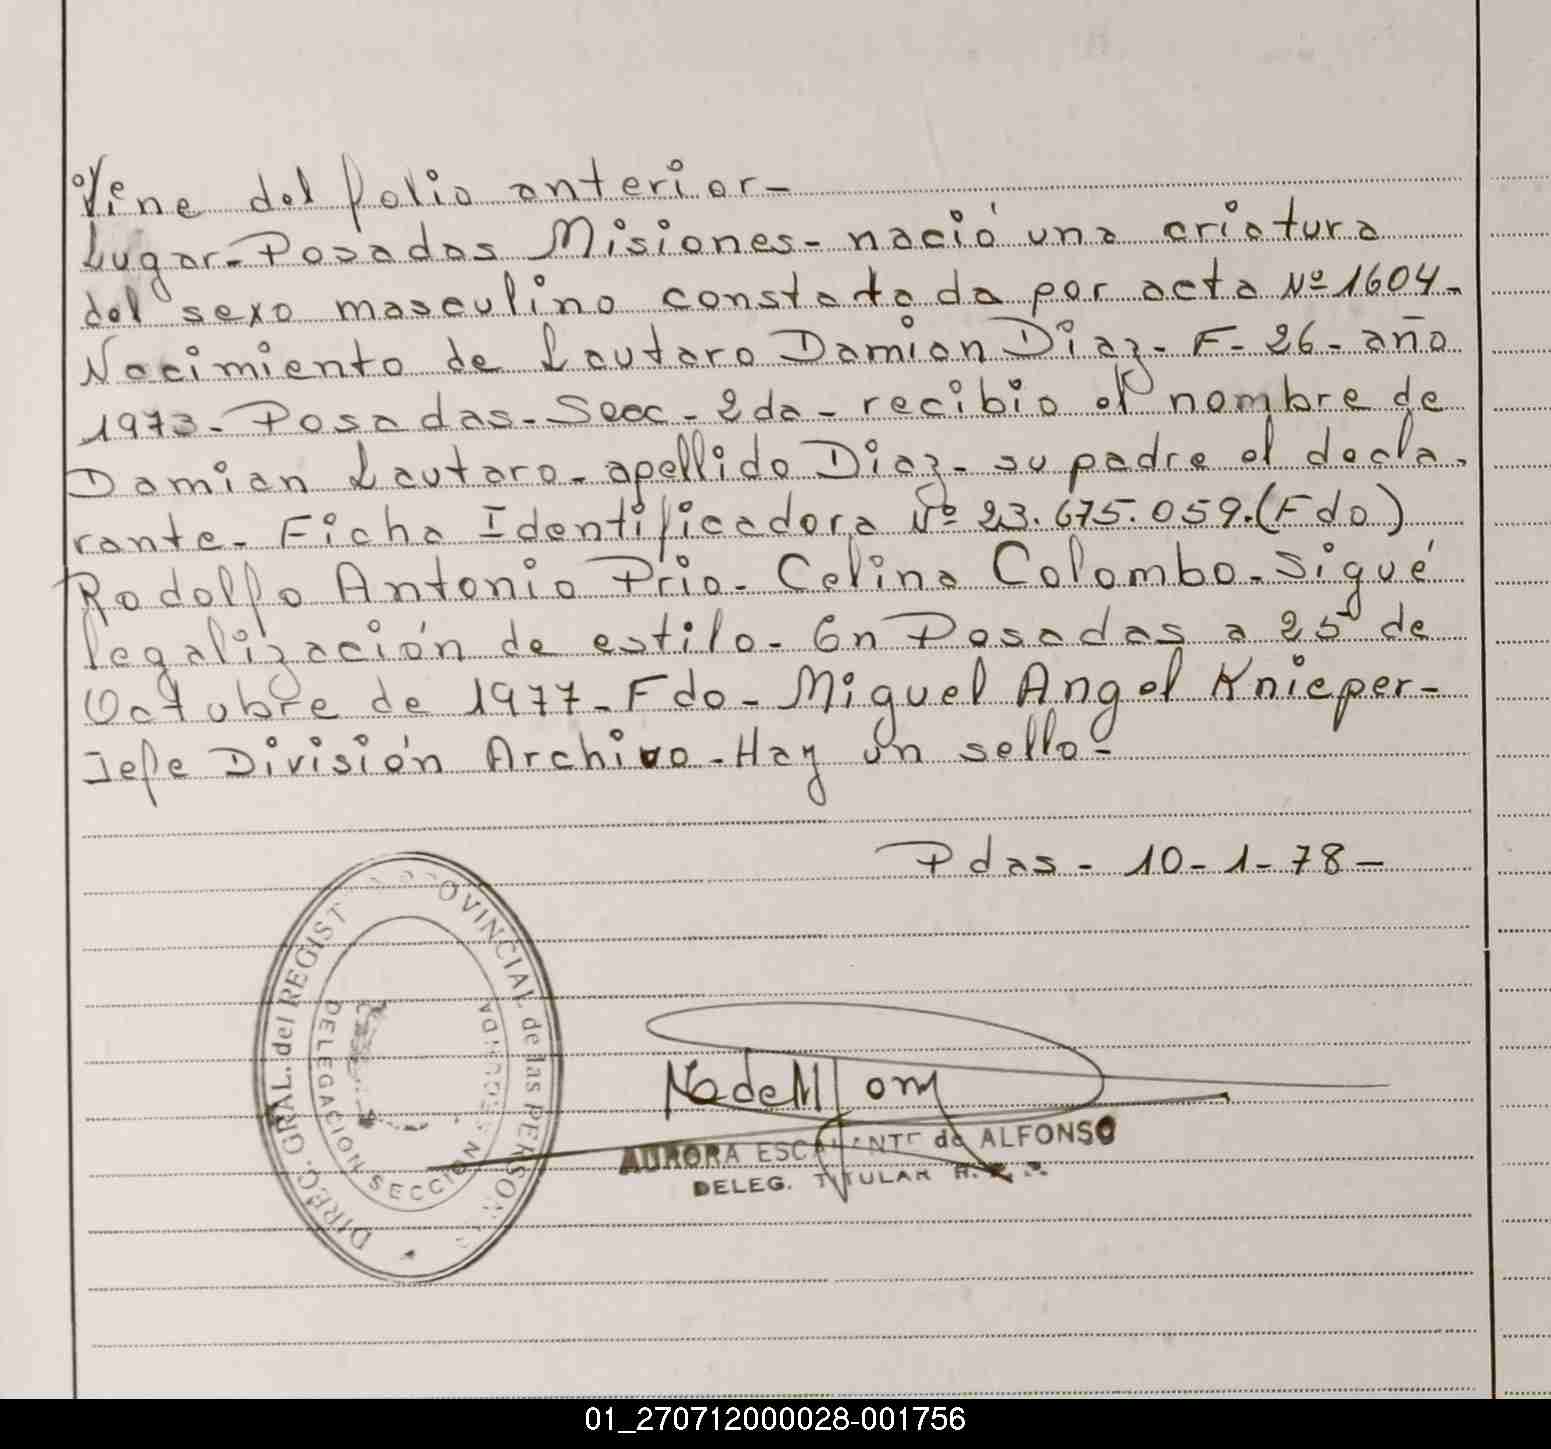 Viene del folio anterior-
Lugar- Posadas Misiones- nació una criatura
del sexo masculino constatada por acta Nº 1604-
Nacimiento de Lautaro Damian Diaz- F- 26- año
1973- Posadas- Secc- 2da- recibio el nombre de
Damian Lautaro- apellido Diaz- su padre el decla-
rante- Ficha Identificadora Nº 23.675.059.(Fdo)
Rodolfo Antonio Prio- Celina Colombo- Sigué
legalización de estilo- En Posadas a 25 de
Octubre de 1977- Fdo- Miguel Angel Knieper-
Jefe División Archivo- Hay un sello-
Pdas- 10-1-78-
DIREC. GRAL. del REGIST OVINCIAL de las PERSON
DELEGACION SECCION
AURORA ESCALANTE de ALFONSO
DELEG. TITULAR
01_270712000028-001756